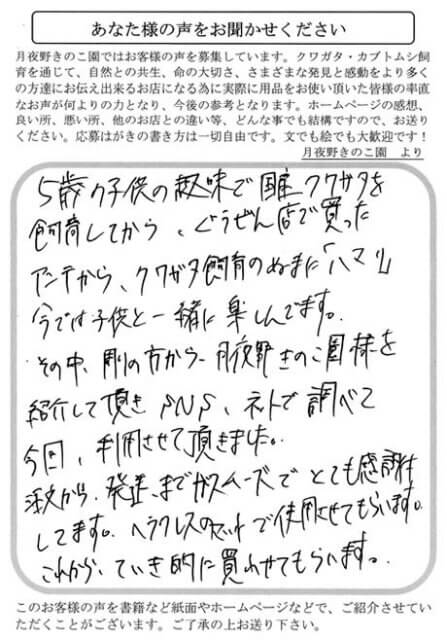 あなた様の声をお聞かせください
月夜野きのこ園ではお客様の声を募集しています。クワガタ・カブトムシ飼
育を通じて、自然との共生、命の大切さ、さまざまな発見と感動をより多く
の方達にお伝え出来るお店になる為に実際に用品をお使い頂いた皆様の率直
なお声が何よりの力となり、今後の参考となります。ホームページの感想、
良い所、悪い所、他のお店との違い等、どんな事でも結構ですので、お送り
ください。応募はがきの書き方は一切自由です。文でも絵でも大歓迎です！
月夜野きのこ園　より
5歳の子供の趣味で国産クワガタを
飼育してから、ぐうぜん店で買った
アンテから、クワガタ飼育のぬまに「ハマり」
今では子供と一緒に楽しんでます。
その中、別の方から、月夜野きのこ園様を
紹介して頂きSNS、ネットで調べて
今回、利用させて頂きました。
注文から、発送、までがスムーズで とても感謝
してます。ヘラクレスのセットで使用させてもらいます。
これから、ていき的に買わせてもらいます。
このお客様の声を書籍など紙面やホームページなどで、ご紹介させてい
ただくことがございます。ご了承の上お送り下さい。